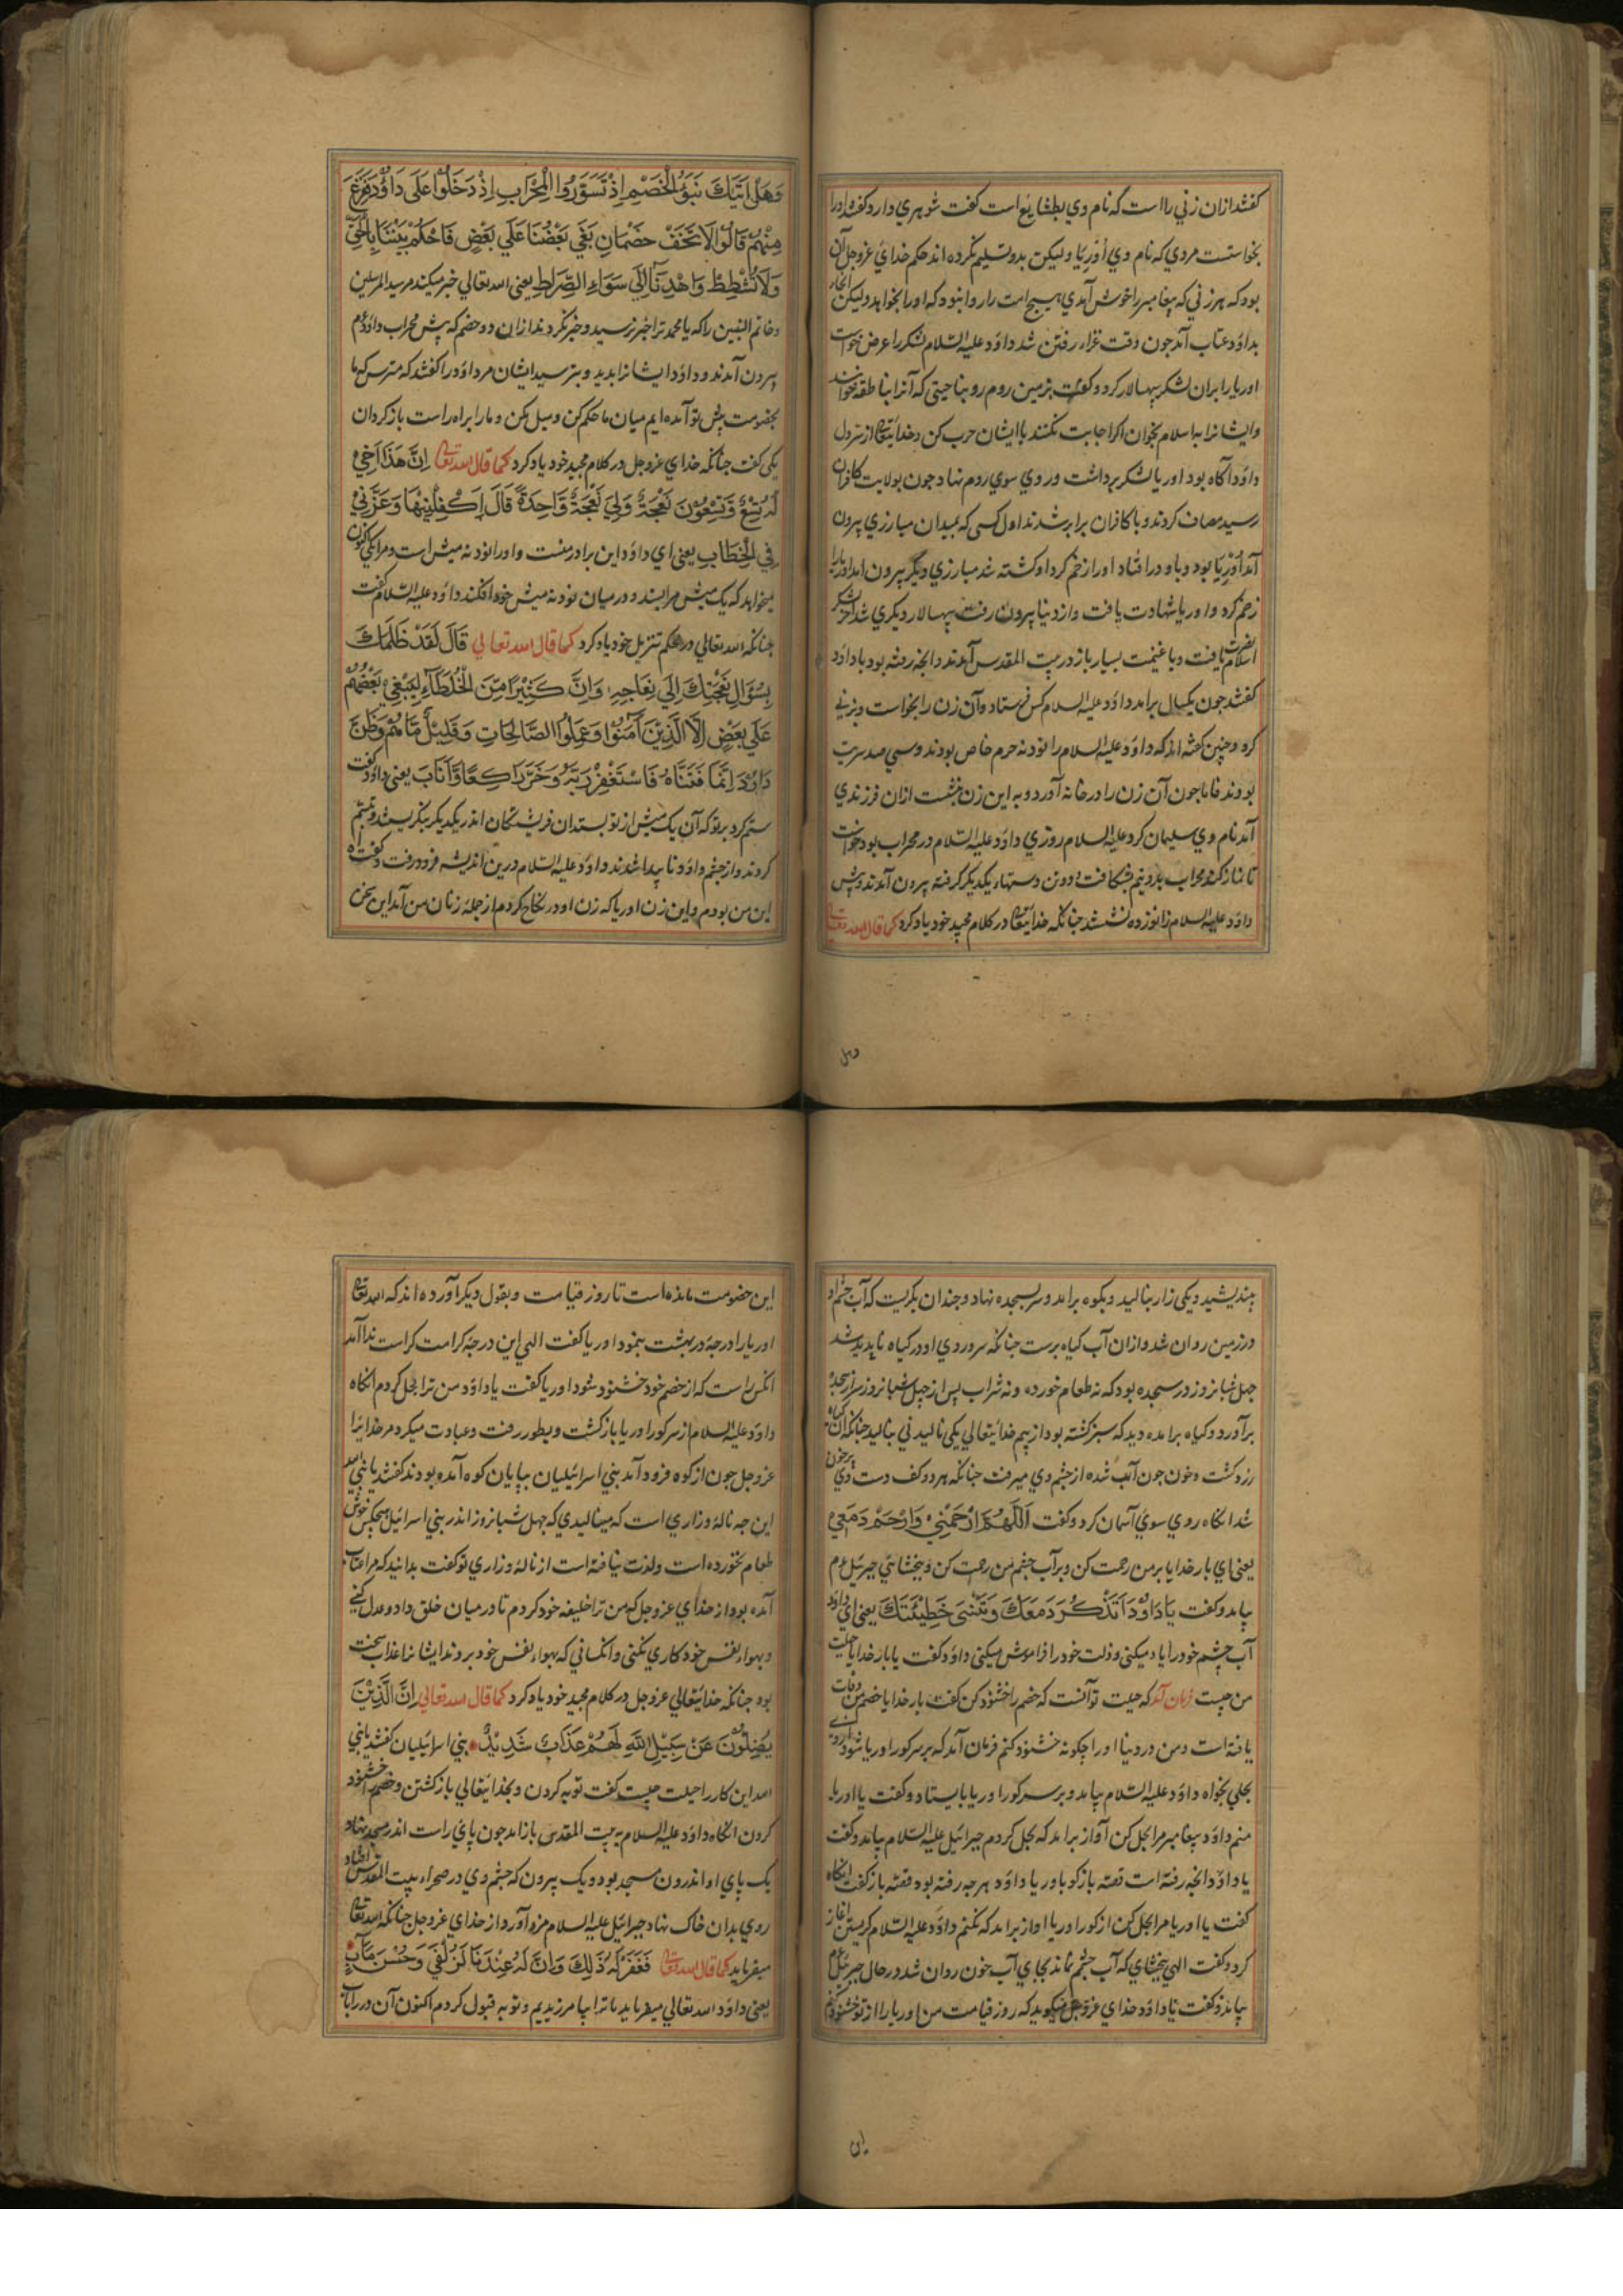 گفتند ازان زنی را است که نام وی بطشایع است گفت شوهری دارد گفتند او را
بخواستست مردی که نام وی اُوریا ولیکن بدو تسلیم نکرده اند حکم خدای عزوجل آن
بود که هر زنی که پیغامبر را خوش آمدی هیچ امت را روا نبود که او را بخواهد ولیکن
بداود عتاب آمد جون وقت غزاء رفتن شد داود علیه السلام لشکر را عرض خواست
اوریا را بران لشکر سپهسالار کرد و گفت بزمین روم رو بناحیتی که آنرا بناطقه خوانند
وایشانرا به اسلام بخوان اکر اجابت نکنند با ایشان حرب کن و خدایتعالی از سر دل
داود آکاه بود اوریا لشکر برداشت و روی سوی روم نهاد جون بولایت کافران
رسید مصاف کردند و با کافران برابر شدند اول کسی که بمیدان مبارزی بیرون
آمد اُوریا بود و باو درافتاد او را زخم کرد او کشته شد مبارزی دیگر بیرون امد اوریا را
زخم کرد و اوریا شهادت یافت و از دنیا بیرون رفت سپهسالار دیکری شد آخر لشکر
اسلام نصرت یافت و با غنیمت بسیار باز در بیت المقدس آمدند و انچه رفته بود با داود
گفتند جون یکسال برامد داود علیه السلام کس فرستاد و آن زن را بخواست و بزنی
کرد و جنین کفته اند که داود علیه السلام را نود نه حرم خاص بودند و سی صد سریت
بودند فاما جون آن زن را در خانه آورد و به این زن نشست ازان فرزندی
آمد نام وی سلیمان کرد علیه السلام روزی داود علیه السلام در محراب بود خواست
تا نماز کند محراب بدو نیم شکافت و دو تن دستهاء یکدیکر کرفته بیرون آمدند و پیش
داود علیه السلام زانو زده نشستند جنانکه خدایتعالی در کلام مجید خود یاد کرد کما قال الله تعالی
وهل
وَهَلْ اَتٰیكَ نَبَؤُ الْخَصْمِ اِذْ تَسَوَّرُوا الْمِحْرَابِ اِذْ دَخَلُوْا عَلَی دَاوُدَ فَفَزِعَ
مِنْهُمْ قَالُوْا لَا تَخَفْ خَصْمَانِ بَغَی بَعْضُنَا عَلَی بَعْضٍ فَاحْكُمْ بَیْنَنَا بِالْحَقِّ
وَلَا تُشْطِطْ وَاهْدِنَا اِلَی سَوَاءِ الصِّرَاطِ یعنی الله تعالی خبر میکند مر سید المرسلین
و خاتم النبیین را که یا محمد ترا خبر نرسید و خبر نکردند ازان دو خصم که پیش محراب داود عم
بیرون آمدند و داود ایشانرا بدید و بترسید ایشان مر داود را کفتند که مترس که ما
بخصومت پیش تو آمده ایم میان ما حکم کن و میل مکن و مارا براه راست باز کردان
یکی کفت جنانکه خدای عزوجل در کلام مجید خود یاد کرد کما قال الله تعالی اِنَّ هَذَا اَخِیْ
لَهُ تِسْعٌ وَّتِسْعُوْنَ نَعْجَةً وَلِیَ نَعْجَةٌ وَاحِدَةٌ قَالَ اَكْفِلْنِیْهَا وَعَزَّنِیْ
فِی الْخِطَابِ یعنی ای داود این برادر منست و او را نود نه میش است و مرا یکی اکنون
میخواهد که یک میش مرا بستد و در میان نود نه میش خود افکند داود علیه السلام کفت
جنانکه الله تعالی در محکم تنزیل خود یاد کرد کما قال الله تعالی قَالَ لَقَدْ ظَلَمَكَ
بِسُؤَالِ نَعْجَتِكَ اِلَی نِعَاجِهِ وَاِنَّ كَثِیْرًا مِّنَ الْخُلَطَآءِ لَیَبْغِیْ بَعْضُهُمْ
عَلَی بَعْضٍ اِلَّا الَّذِیْنَ آمَنُوْا وَعَمِلُوا الصَّالِحَاتِ وَقَلِیْلٌ مَّا هُمْ وَظَنَّ
دَاوُدُ اَنَّمَا فَتَنَّاهُ فَاسْتَغْفَرَ رَبَّهُ وَخَرَّ رَاكِعًا وَّاَنَابَ یعنی داود کفت
ستم کرد بر تو که آن یک میش از تو بستد ان فریشتکان اندر یکدیکر بنکریستند و تبسم
کردند و از جشم داود ناپیدا شدند داود علیه السلام درین اندیشه فرو رفت و کفت آه
این من بودم و این زن اوریا که زن او در نکاح کردم از جمله زنان من آمد این سخن
بیندیشید و بکی زار بنالید و بکوه برامد و سر بسجده نهاد و جندان بکریست که آب جشم او
در زمین روان شد و ازان آب کیاه برست جنانکه سر و روی او در کیاه ناپدید شد
جهل شبانروز در سجده بود که نه طعام خورده و نه شراب پس از چهل شبانروز سر از سجده
برآورد و کیاه برامده دید که سبز کشته بود از بیم خدایتعالی یکی نالیدنی بنالید جنانکه آن کیاه
زرد کشت و خون جون آب شده از جشم وی میرفت جنانکه هر دو کف دست وی پر خون
شد انکاه روی سوی آسمان کرد و کفت اَللّٰهُمَّ ارْحَمْنِیْ وَارْحَمْ دَمْعِیْ
یعنی ای بار خدایا بر من رحمت کن و بر آب جشم من رحمت کن و ببخشایی جبرئیل عم
بیامد و کفت یَا دَاوُدُ اَتَذْكُرُ دَمْعَكَ وَتَنْسَی خَطِیْئَتَكَ یعنی ای داود
آب جشم خود را یاد میکنی و ذلت خود را فراموش میکنی داود کفت یا بار خدایا حیلت
من جیست فرمان آمد که حیلت تو آنست که خصم را خشنود کن کفت بار خدایا خصم من وفات
یافته است و من در دنیا او را جکونه خشنود کنم فرمان آمد که بر سر کور اوریا شو و از وی
بحلی بخواه داود علیه السلام بیامد و بر سر کور اوریا بایستاد و کفت یا اوریا
منم داود پیغامبر مرا بحل کن آواز برامد که بحل کردم جبرائیل علیه السلام بیامد و کفت
یا داود انچه رفته است قصه باز کو با اوریا داود هرچه رفته بود قصه باز کفت انکاه
کفت یا اوریا مرا بحل کن از کور اوریا اواز برامد که نکنم داود علیه السلام کریستن اغاز
کرد و کفت الهی ببخشای که آب جشم نماند بجای آب خون روان شد در حال جبرئیل عم
بیامد و کفت یا داود خدای عزوجل میکوید که روز قیامت من اوریا را از تو خشنود کنم
این
این خصومت مانده است تا روز قیامت و بقول دیکر آورده اند که الله تعالی
اوریا را درجهٔ در بهشت بنمود اوریا کفت الهی این درجهٔ کرامت کراست ندا آمد
انکس راست که از خصم خود خشنود شود اوریا کفت یا داود من ترا بحل کردم انکاه
داود علیه السلام از سر کور اوریا باز کشت و بطور رفت و عبادت میکرد مر خدایرا
عزوجل جون از کوه فرود آمد بنی اسرائیلیان بپایان کوه آمده بودند کفتند یا نبی الله
این جه ناله و زاری است که مینالیدی که جهل شبانروز اندر بنی اسرائیل هیچکس خوش
طعام نخورده است و لذت نیافته است از ناله و زاری تو کفت بدانید که مرا عتاب
آمده بود از خدای عزوجل که من ترا خلیفه خود کردم تا در میان خلق داد و عدل کنی
و بهواء نفس خود کاری نکنی و انکسانی که بهواء نفس خود بروند ایشانرا عذاب سخت
بود جنانکه خدایتعالی عزوجل در کلام مجید خود یاد کرد کما قال الله تعالی اِنَّ الَّذِیْنَ
یَضِلُّوْنَ عَنْ سَبِیْلِ اللّٰهِ لَهُمْ عَذَابٌ شَدِیْدٌ بنی اسرائیلیان کفتند یا نبی
الله این کار را حیلت جیست کفت توبه کردن و بخدایتعالی باز کشتن و خصم را خشنود
کردن انکاه داود علیه السلام به بیت المقدس باز امد جون پای راست اندر مسجد نهاد
یک پای او اندرون مسجد بود و یک بیرون که جشم وی در صحراء بیت المقدس افتاد
روی بدان خاک نهاد جبرائیل علیه السلام مژده آورد از خدای عزوجل جنانکه الله تعالی
میفرماید کما قال الله تعالی فَغَفَرْنَا لَهُ ذٰلِكَ وَاِنَّ لَهُ عِنْدَنَا لَزُلْفَی وَحُسْنَ مَآبٍ
یعنی داود الله تعالی میفرماید ما ترا بیامرزیدیم و توبه قبول کردم اکنون آن در راه